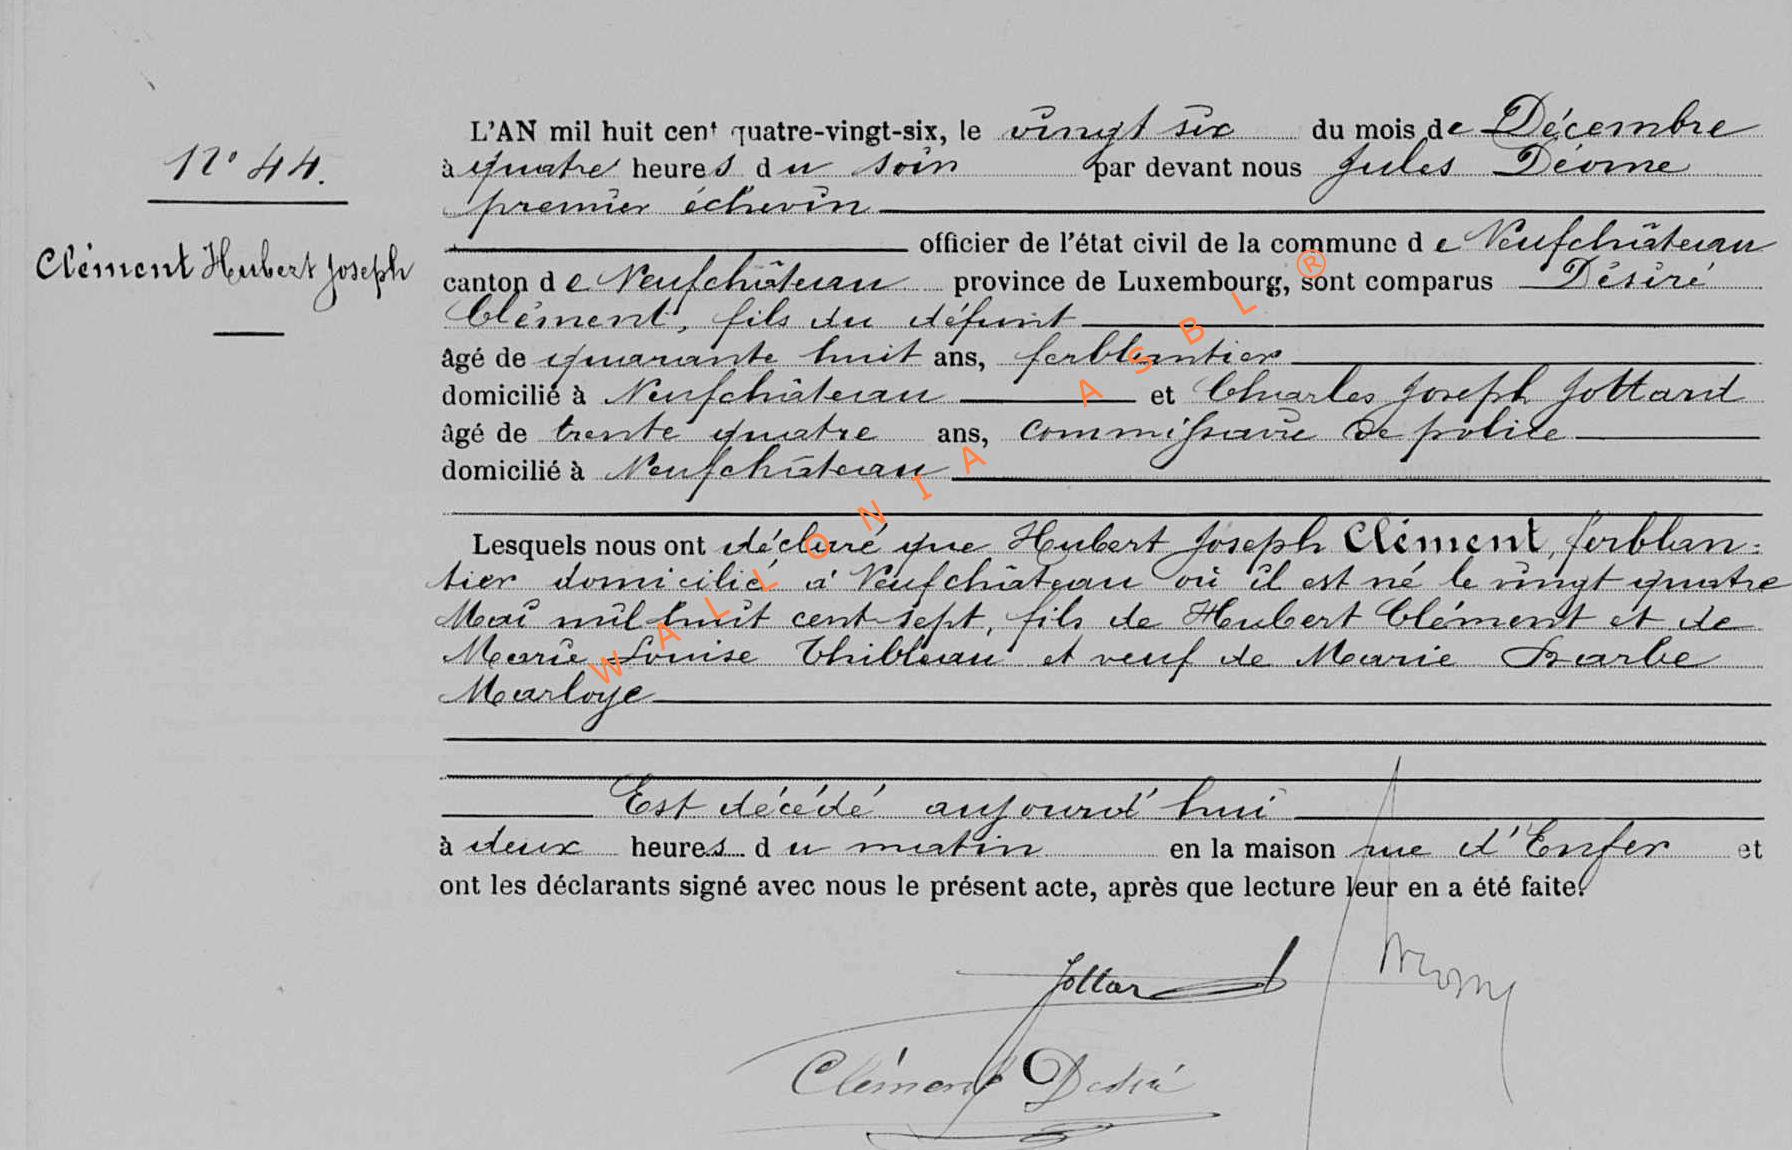 N° 44.
Clément Hubert Joseph
L'AN mil huit cent quatre-vingt-six, le vingt six du mois de Décembre
à quatre heures du soir par devant nous Jules Déome
premier échevin
officier de l'état civil de la commune de Neufchâteau
canton de Neufchâteau province de Luxembourg, sont comparus Désiré
Clément, fils du défunt
âgé de quarante huit ans, ferblantier
domicilié à Neufchâteau et Charles Joseph Jottard
âgé de trente quatre ans, commissaire de police
domicilié à Neufchâteau
Lesquels nous ont déclaré que Hubert Joseph Clément, ferblan=
tier domicilié à Neufchâteau où il est né le vingt quatre
Mai mil huit cent sept, fils de Hubert Clément et de
Marie Louise Thibleau et veuf de Marie Barbe
Marloye
Est décédé aujourd'hui
à deux heures du matin en la maison rue d'Enfer et
ont les déclarants signé avec nous le présent acte, après que lecture leur en a été faite.
Jottard
Clément Désiré
WALLONIA ASBL ®